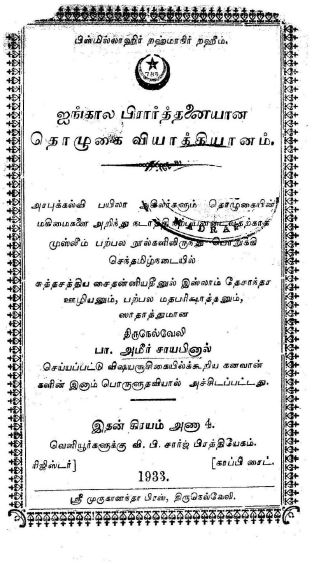 பிஸ்மில்லாஹிர் றஹ்மாநிர் றஹீம்.
786
ஐங்கால பிரார்த்தனையான
தொழுகை வியாக்கியானம்.
அரபுக்கல்வி பயிலா தொழுகையின்
மகிமைகளை அறிந்து
முஸ்லீம் பற்பல நூல்களிலிருந்து பொறுக்கி
செந்தமிழ்நடையில்
சுத்தசத்திய சைதன்னியதினுல் இஸ்லாம் தேசாந்தர
ஊழியனும், பற்பல மதபரிக்ஷாத்தனும்,
ஸாதாத்துமான
திருநெல்வேலி
பா. அமீர் சாயபினால்
செய்யப்பட்டு விஷயருசிகையில்க்கூறிய கனவான்
களின் இனாம் பொருளுதவியால் அச்சிடப்பட்டது.
இதன் கிரயம் அணா 4.
வெளியூர்களுக்கு வி. பி. சார்ஜ் பிரத்தியேகம்.
ரிஜிஸ்டர்] [காப்பி ரைட்.
1933.
ஸ்ரீ முருகானந்தா பிரஸ், திருநெல்வேலி.